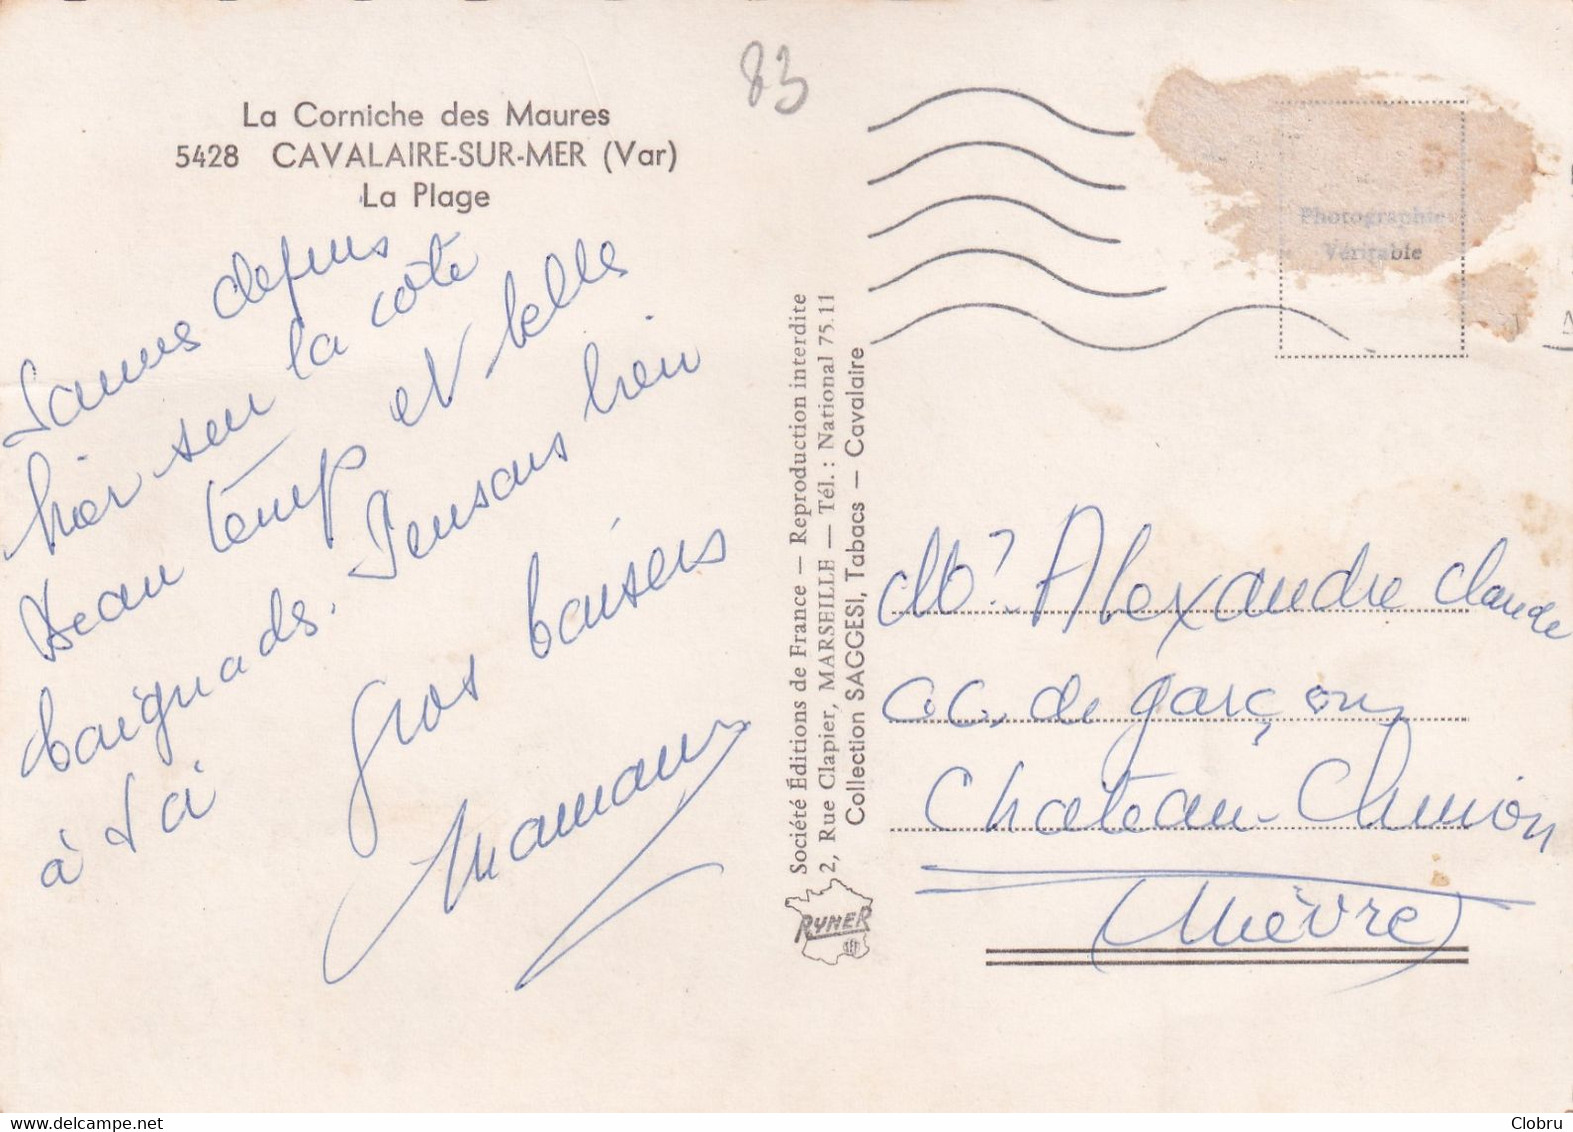 83
La Corniche des Maures
5428 CAVALAIRE-SUR-MER (Var)
La Plage
depuis
hier sur la côte
Beau temp et belle
baignade. Pensons bien
à toi gros baisers
Maman
Société Éditions de France — Reproduction interdite
2, Rue Clapier, MARSEILLE — Tél. : National 75.11
Collection SAGGESI, Tabacs — Cavalaire
RYNER
Photographie
Véritable
Mr Alexandre Claude
c.c. de garçon
Château-Chinon
(Nièvre)
Clobru
delcampe.net